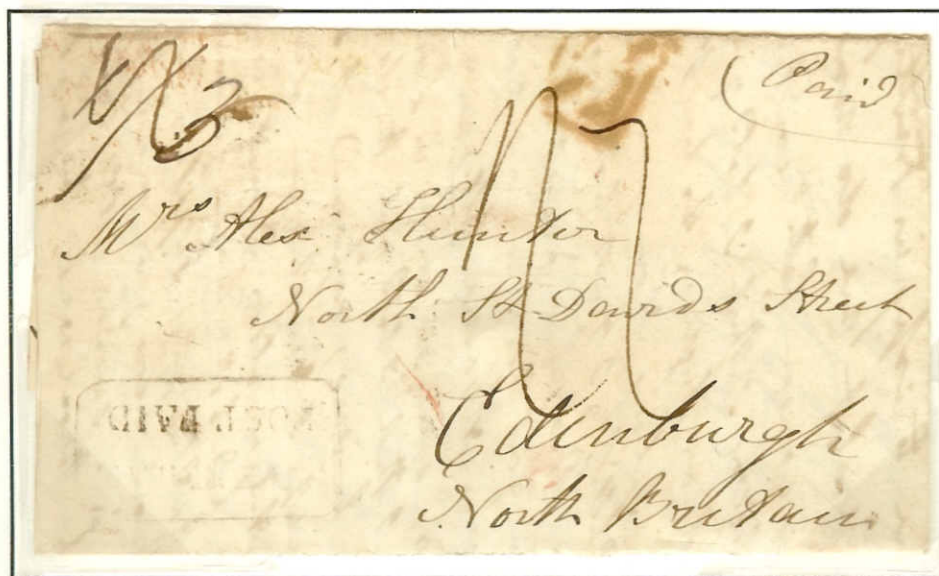 Paid
Mrs Alex Hunter
North St Davids Street
Edinburgh
North Britain
POST PAID